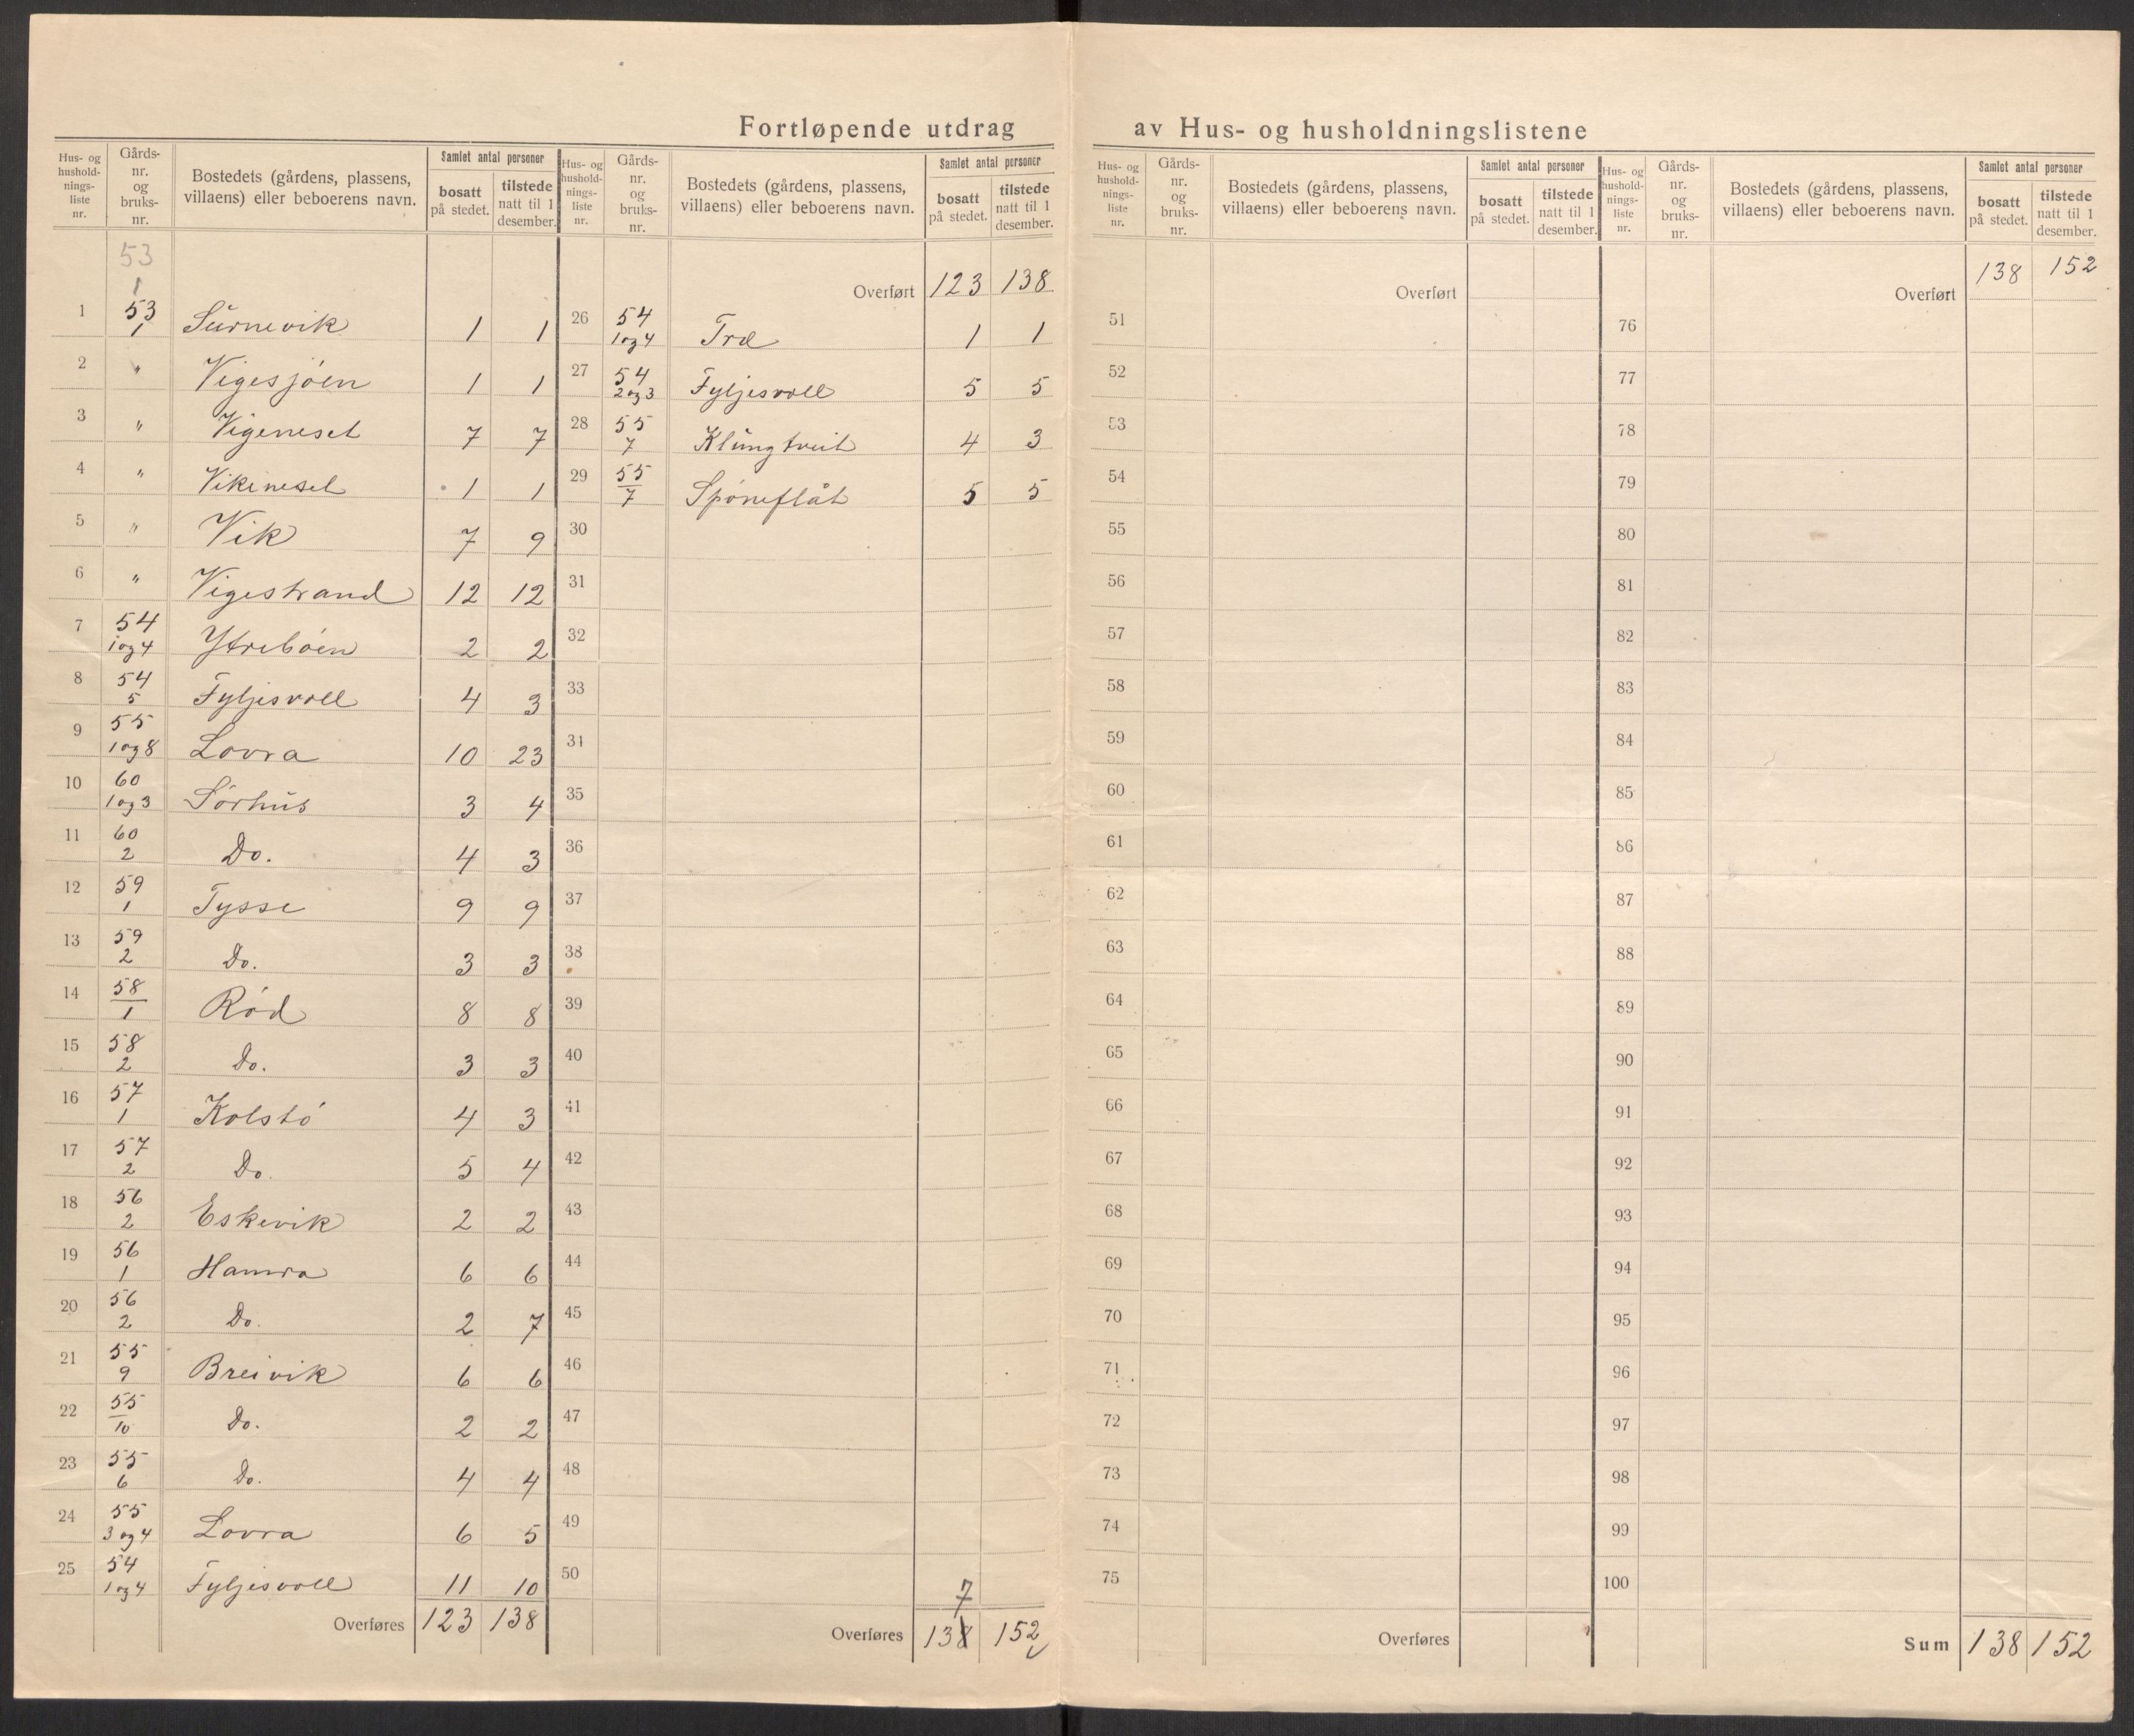 Fortløpende utdrag av Hus- og husholdningslistene
Hus- og hushold-nings-liste nr. | Gårds-nr. og bruks-nr. | Bostedets (gårdens, plassens, villaens) eller beboerens navn. | Samlet antal personer | bosatt på stedet. | tilstede natt til 1 desember.
53
1
1 | 53 1 | Surnevik | 1 | 1
2 | " | Vigesjøen | 1 | 1
3 | " | Vigeneset | 7 | 7
4 | " | Vikeneset | 1 | 1
5 | " | Vik | 7 | 9
6 | " | Vigestrand | 12 | 12
7 | 54 1 og 4 | Ytrebøen | 2 | 2
8 | 54 5 | Fyljesvoll | 4 | 3
9 | 55 1 og 8 | Lovra | 10 | 23
10 | 60 1 og 3 | Sørhus | 3 | 4
11 | 60 2 | Do. | 4 | 3
12 | 59 1 | Tysse | 9 | 9
13 | 59 2 | Do. | 3 | 3
14 | 58 1 | Rød | 8 | 8
15 | 58 2 | Do. | 3 | 3
16 | 57 1 | Kolstø | 4 | 3
17 | 57 2 | Do. | 5 | 4
18 | 56 2 | Eskevik | 2 | 2
19 | 56 1 | Hamra | 6 | 6
20 | 56 2 | Do. | 2 | 7
21 | 55 9 | Breivik | 6 | 6
22 | 55 10 | Do. | 2 | 2
23 | 55 6 | Do. | 4 | 4
24 | 55 3 og 4 | Lovra | 6 | 5
25 | 54 1 og 4 | Fyljesvoll | 11 | 10
Overføres 123 138
Hus- og hushold-nings-liste nr. | Gårds-nr. og bruks-nr. | Bostedets (gårdens, plassens, villaens) eller beboerens navn. | Samlet antal personer | bosatt på stedet. | tilstede natt til 1 desember.
Overført 123 138
26 | 54 1 og 4 | Træ | 1 | 1
27 | 54 2 og 3 | Fyljesvoll | 5 | 5
28 | 55 7 | Klungtveit | 4 | 3
29 | 55 7 | Spøneflåt | 5 | 5
30
31
32
33
34
35
36
37
38
39
40
41
42
43
44
45
46
47
48
49
50
7
Overføres 138 152
Hus- og hushold-nings-liste nr. | Gårds-nr. og bruks-nr. | Bostedets (gårdens, plassens, villaens) eller beboerens navn. | Samlet antal personer | bosatt på stedet. | tilstede natt til 1 desember.
Overført
51
52
53
54
55
56
57
58
59
60
61
62
63
64
65
66
67
68
69
70
71
72
73
74
75
Overføres
Hus- og hushold-nings-liste nr. | Gårds-nr. og bruks-nr. | Bostedets (gårdens, plassens, villaens) eller beboerens navn. | Samlet antal personer | bosatt på stedet. | tilstede natt til 1 desember.
Overført 138 152
76
77
78
79
80
81
82
83
84
85
86
87
88
89
90
91
92
93
94
95
96
97
98
99
100
Sum 138 152